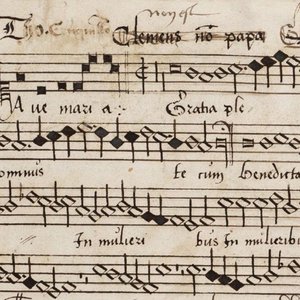 non est
Tho. Clemens nō papa
A ue mari a: Gratia ple
ominus te cum Benedicta
In mulieri bus In mulieribu